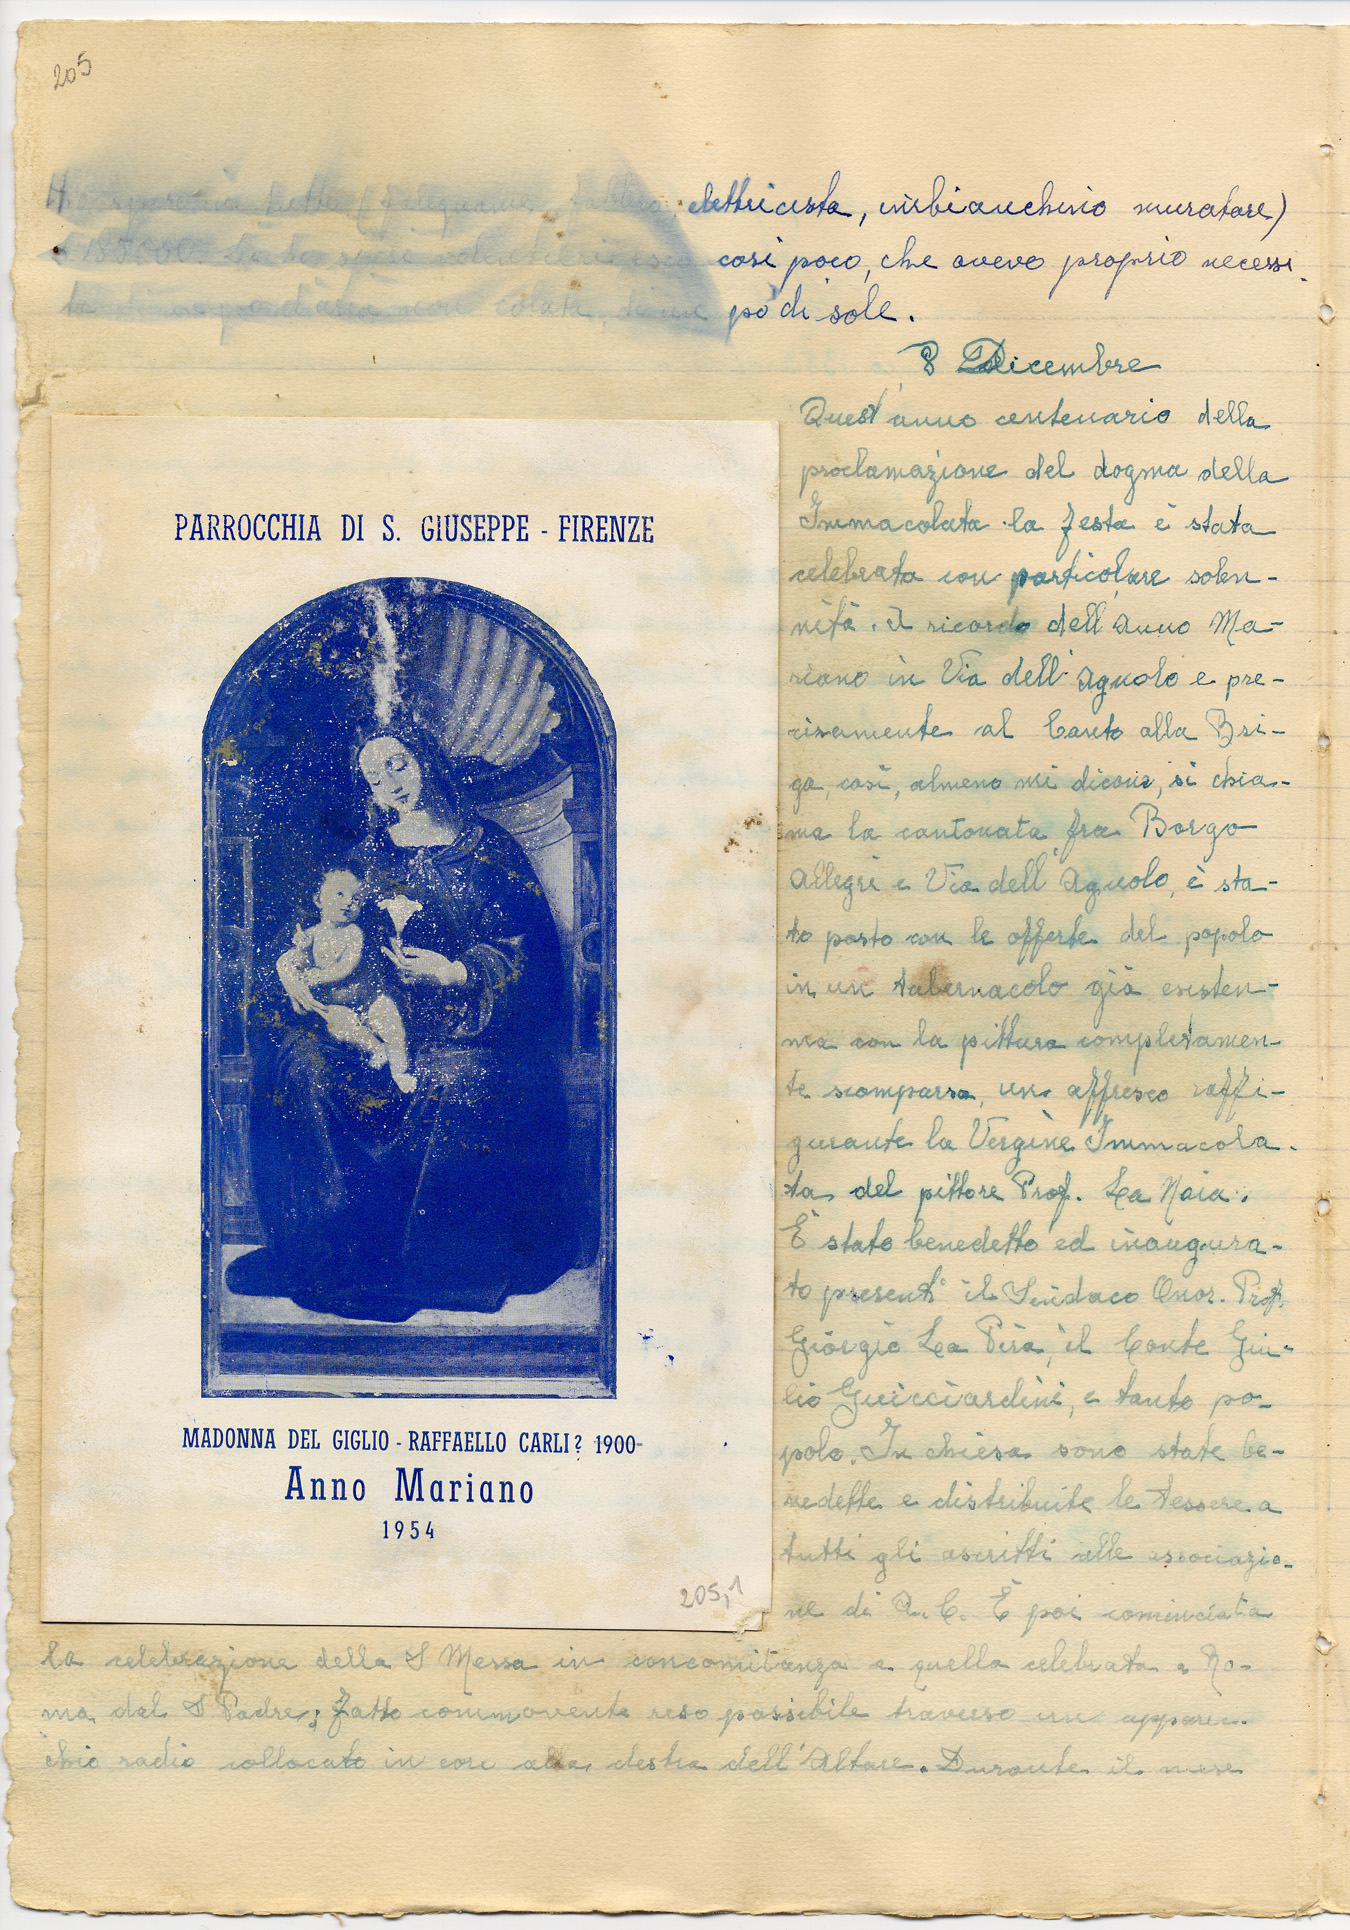 205
tutto (falegname, elettricista, imbianchino muratore)
185.000. volentieri così poco, che avevo proprio necessi
tà di un po' d'aria non colata, di un pò di sole.
8 Dicembre
Quest'anno centenario della
proclamazione del dogma della
Immacolata la festa è stata
celebrata con particolare solen-
nità. il ricordo dell'Anno Ma-
riano in Via dell'Agnolo e pre-
cisamente al Canto alla Bri-
ga, così, almeno mi dicono, si chia-
ma la cantonata fra Borgo
Allegri e Via dell'Agnolo, è sta-
to posto con le offerte del popolo
in un tabernacolo già esisten-
ma con la pittura completamen-
te scomparsa, un affresco raffi-
gurante la Vergine Immacola-
ta del pittore Prof. La Naia.
È stato benedetto ed inaugura-
to presenti il Sindaco Onor. Prof.
Giorgio La Pira, il Conte Giu-
lio Guicciardini, e tanto po-
polo. In chiesa sono state be-
nedette e distribuite le tessere a
tutti gli ascritti alle associazio-
ne di A. C. È poi cominciata
la celebrazione della S Messa in concomitanza a quella celebrata a Ro-
ma dal S Padre; fatto commovente reso possibile traverso un apparec-
chio radio collocato in coro alla destra dell'Altare. Durante il mese
PARROCCHIA DI S. GIUSEPPE - FIRENZE
MADONNA DEL GIGLIO - RAFFAELLO CARLI? 1900-
Anno Mariano
1954
205,1